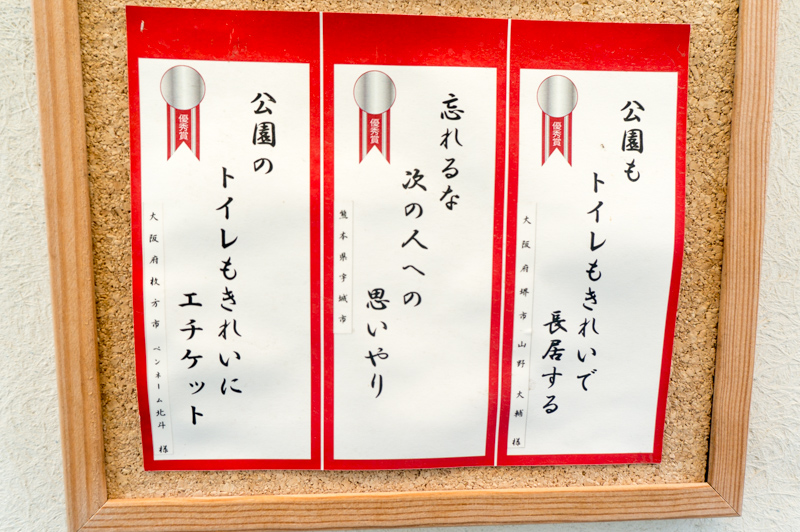 公園も
トイレもきれいで
長居する
優秀賞
大阪府堺市 山野 大輔 様
忘れるな
次の人への
思いやり
優秀賞
熊本県宇城市
公園の
トイレもきれいに
エチケット
優秀賞
大阪府枚方市 ペンネーム北斗 様